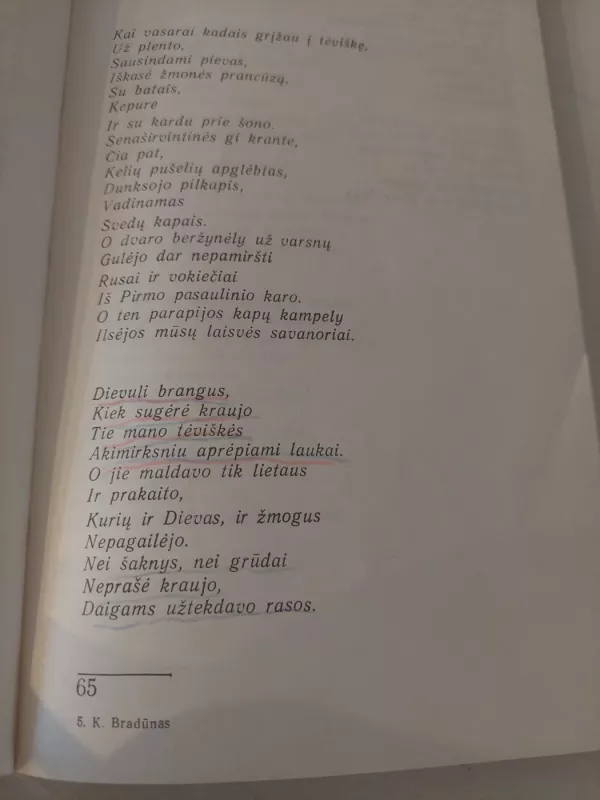 Kai vasarai kadais grįžau į tėviškę,
Už plento,
Sausindami pievas,
Iškasė žmonės prancūzą,
Su batais,
Kepurė
Ir su kardu prie šono.
Senaširvintinės gi krante,
Čia pat,
Kelių pušelių apglėbtas,
Dunksojo pilkapis,
Vadinamas
Švedų kapais.
O dvaro beržynėly už varsnų
Gulėjo dar nepamiršti
Rusai ir vokiečiai
Iš Pirmo pasaulinio karo.
O ten parapijos kapų kampely
Ilsėjos mūsų laisvės savanoriai.
Dievuli brangus,
Kiek sugėrė kraujo
Tie mano tėviškės
Akimirksniu aprėpiami laukai.
O jie maldavo tik lietaus
Ir prakaito,
Kurių ir Dievas, ir žmogus
Nepagailėjo.
Nei šaknys, nei grūdai
Neprašė kraujo,
Daigams užtekdavo rasos.
65
5. K. Bradūnas